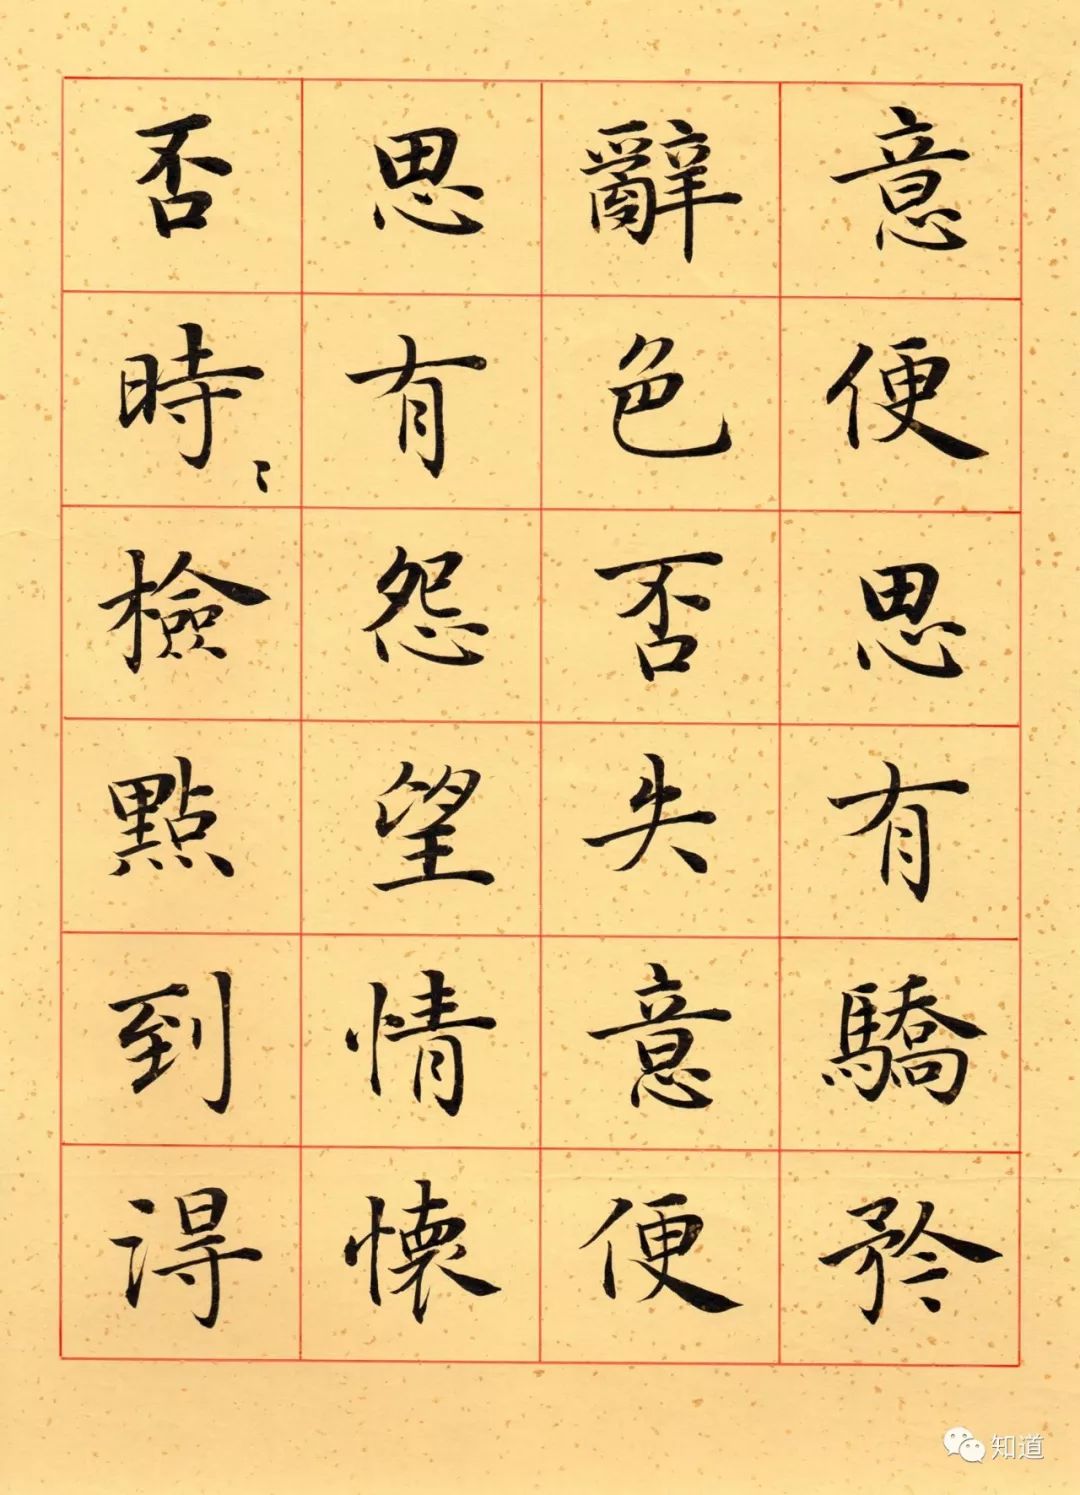 意便思有驕矜
辭色否失意便
思有怨望情懷
否時〻檢點到得
知道